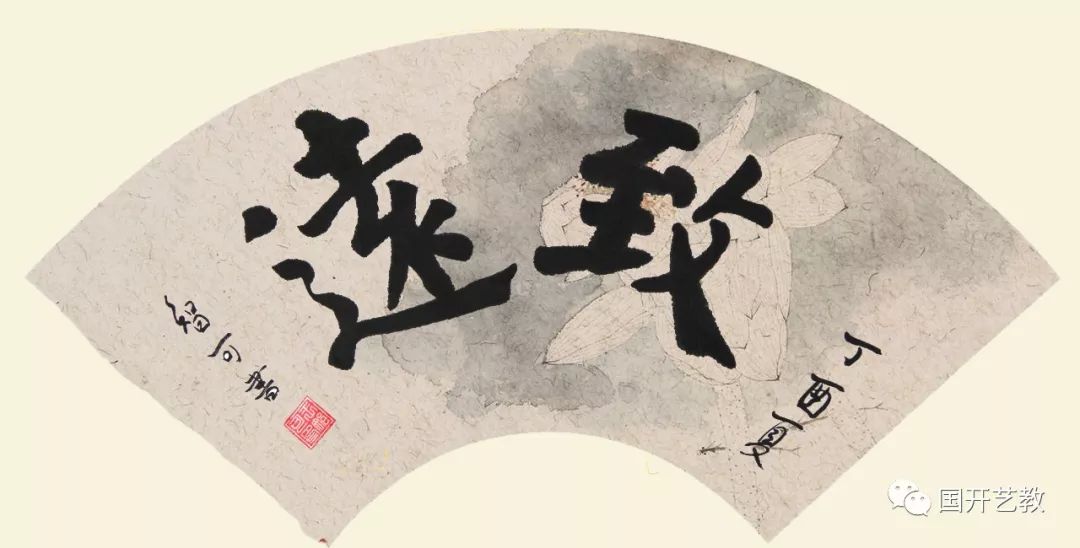 致遠
丁酉夏
智可書
国开艺教